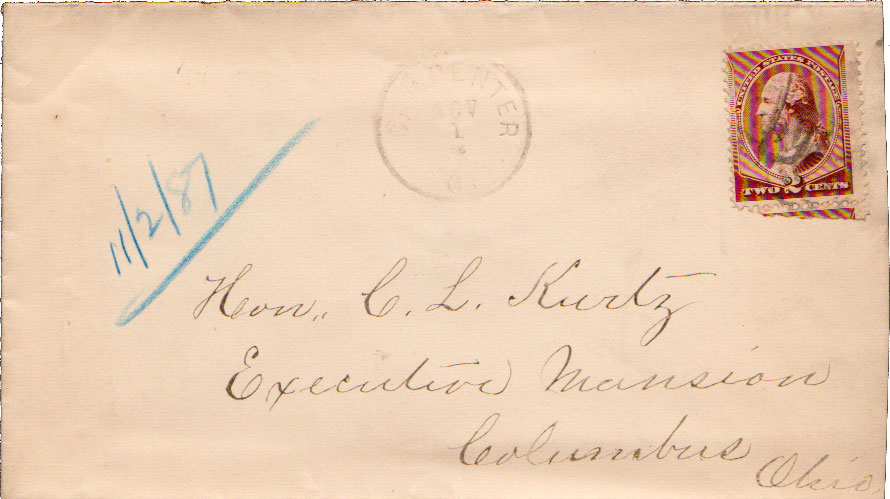 CARPENTER
NOV
1
O
UNITED STATES POSTAGE
TWO 2 CENTS
11/2/87
Hon. C. L. Kurtz
Executive Mansion
Columbus
Ohio